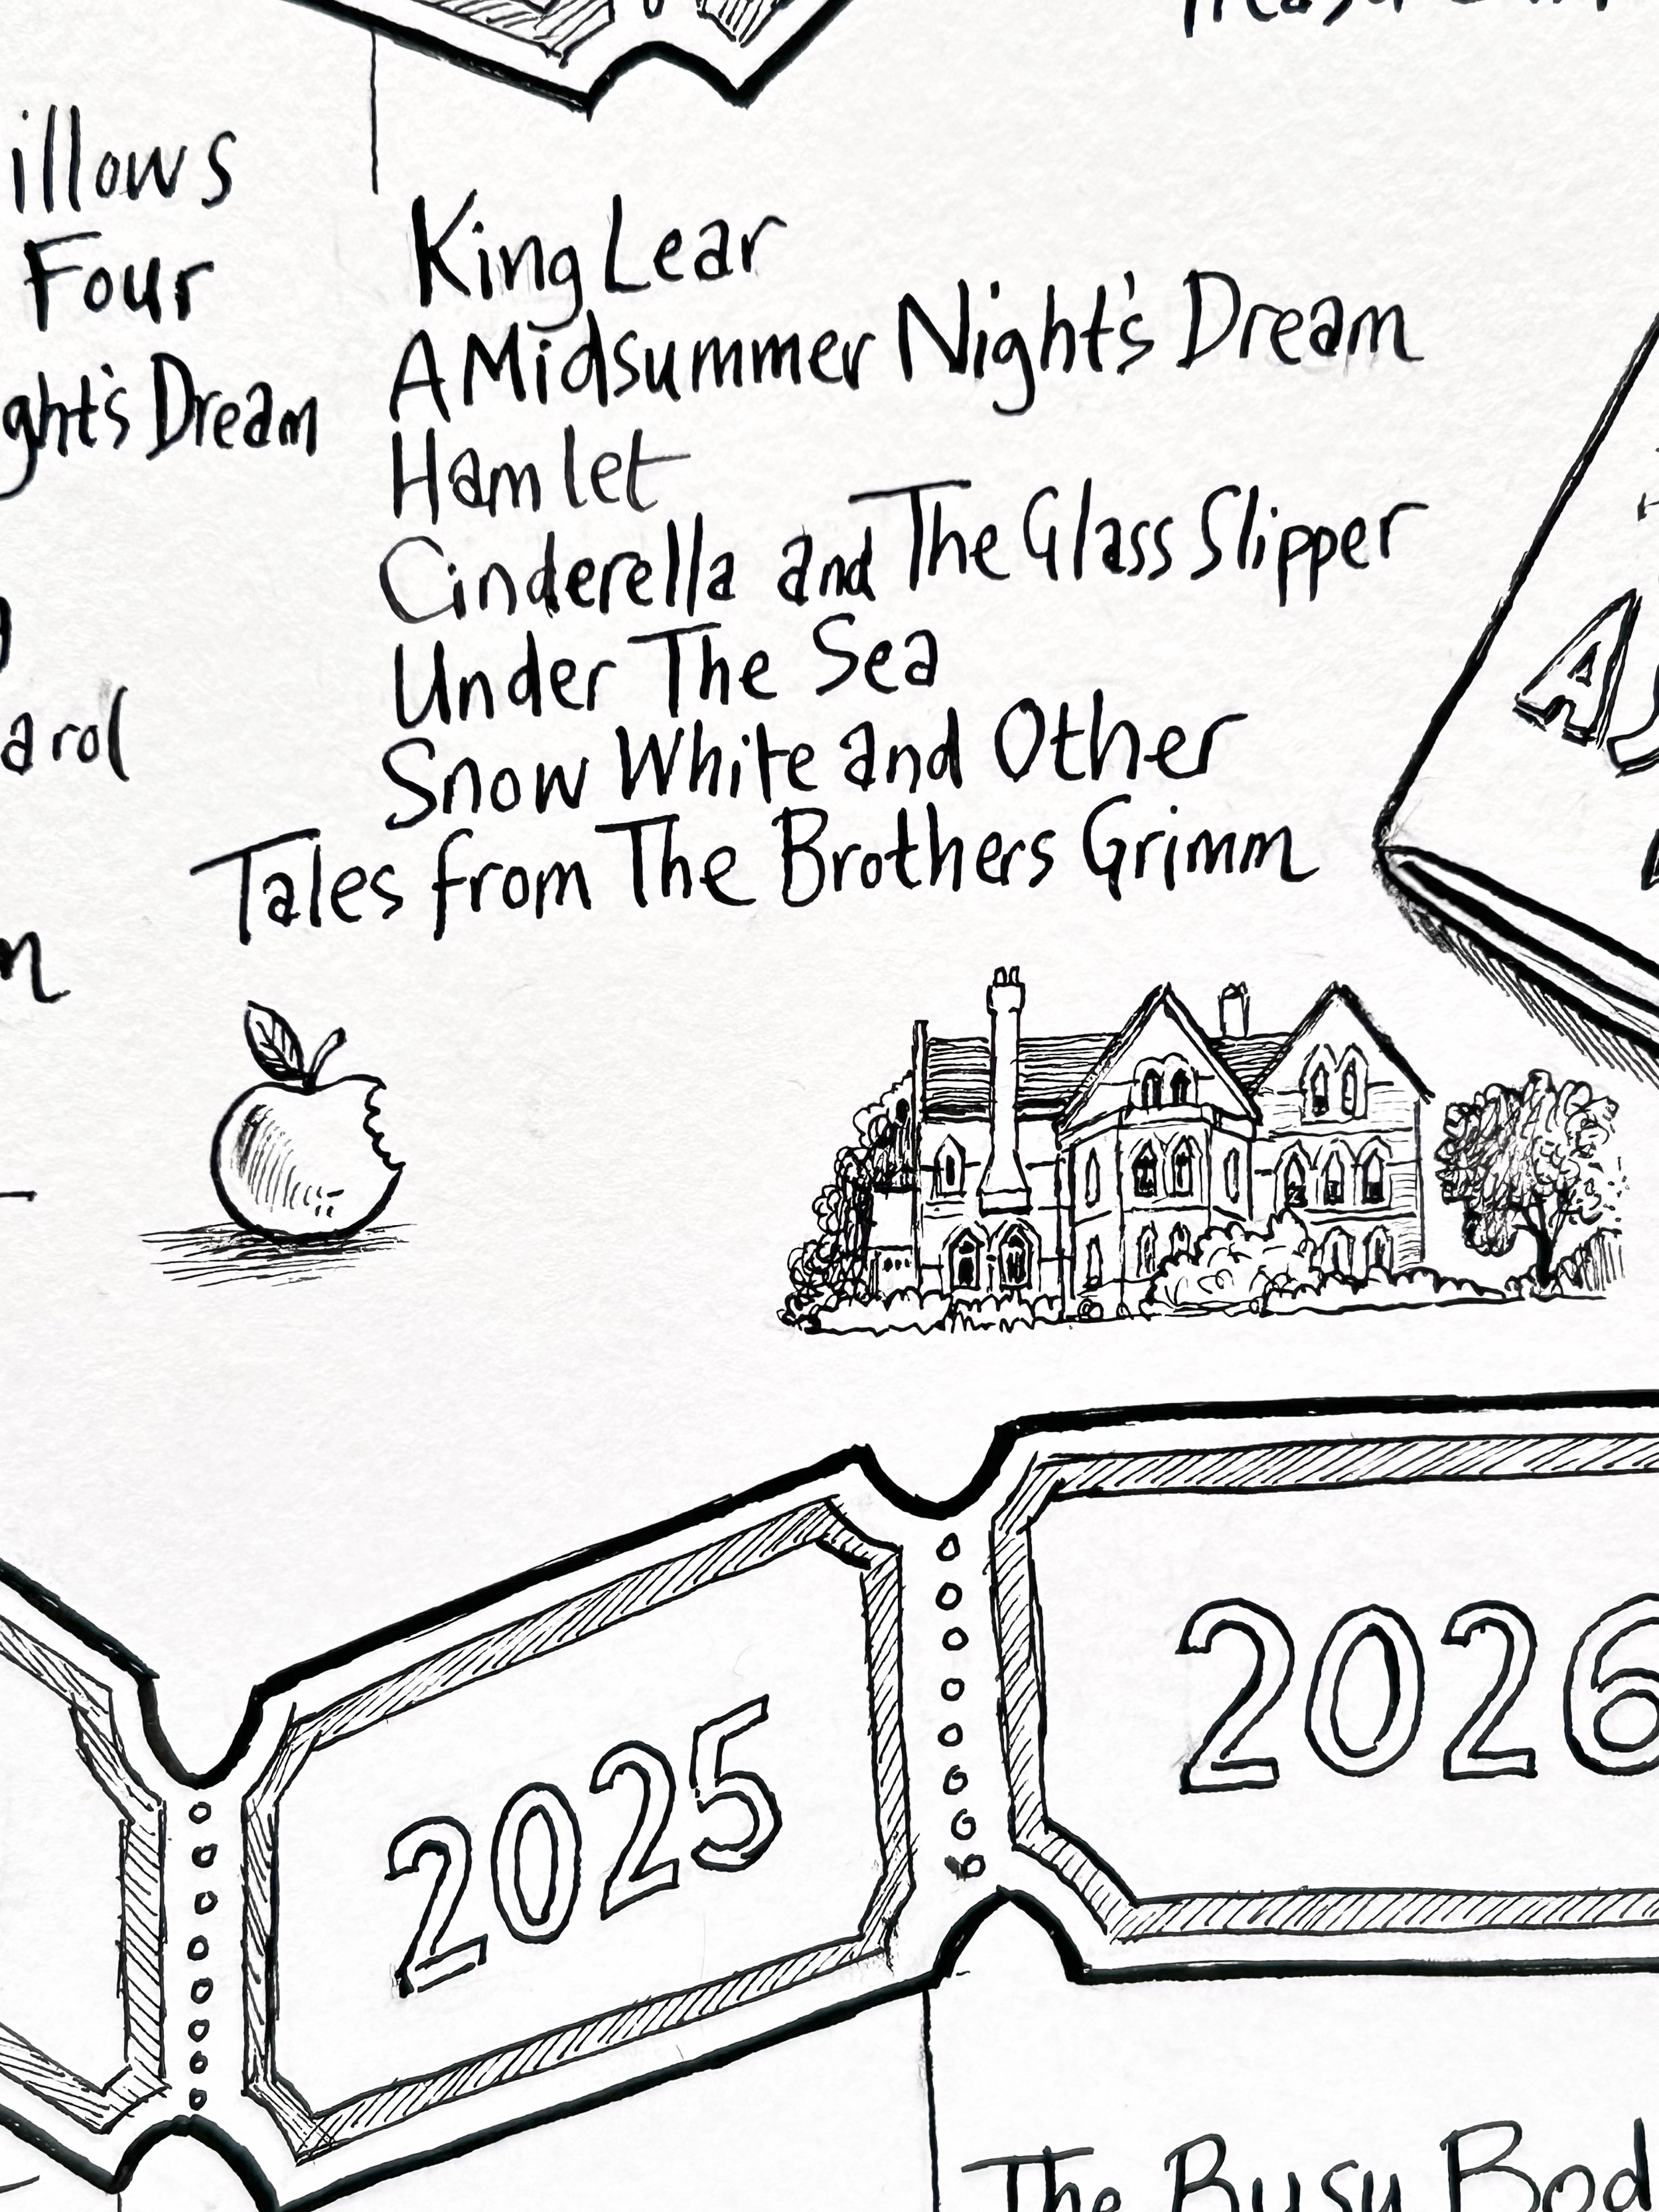 illows
Four
ght's Dream
arol
King Lear
A Midsummer Night's Dream
Hamlet
Cinderella and The Glass Slipper
Under The Sea
Snow White and Other
Tales from The Brothers Grimm
2025
2026
The Busy Bod